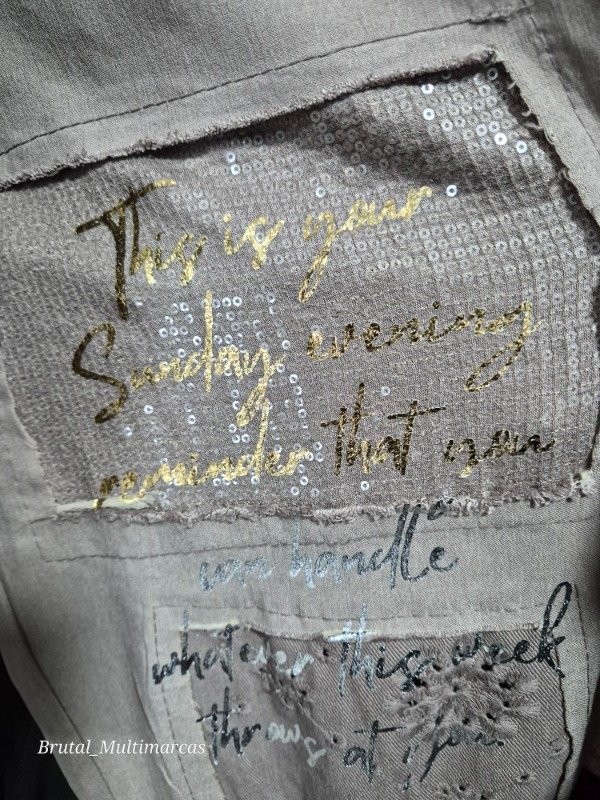 This is your
Sunday evening
reminder that you
can handle
whatever this week
throws at you.
Brutal_Multimarcas